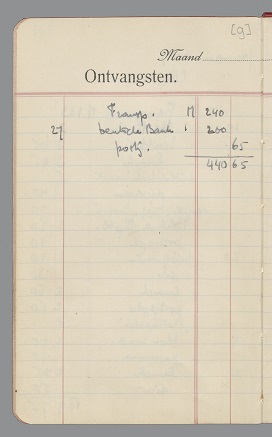 [9]
Maand
Ontvangsten.
Transp. M 240
27 deutsche Bank " 200
portj. 65
440 65